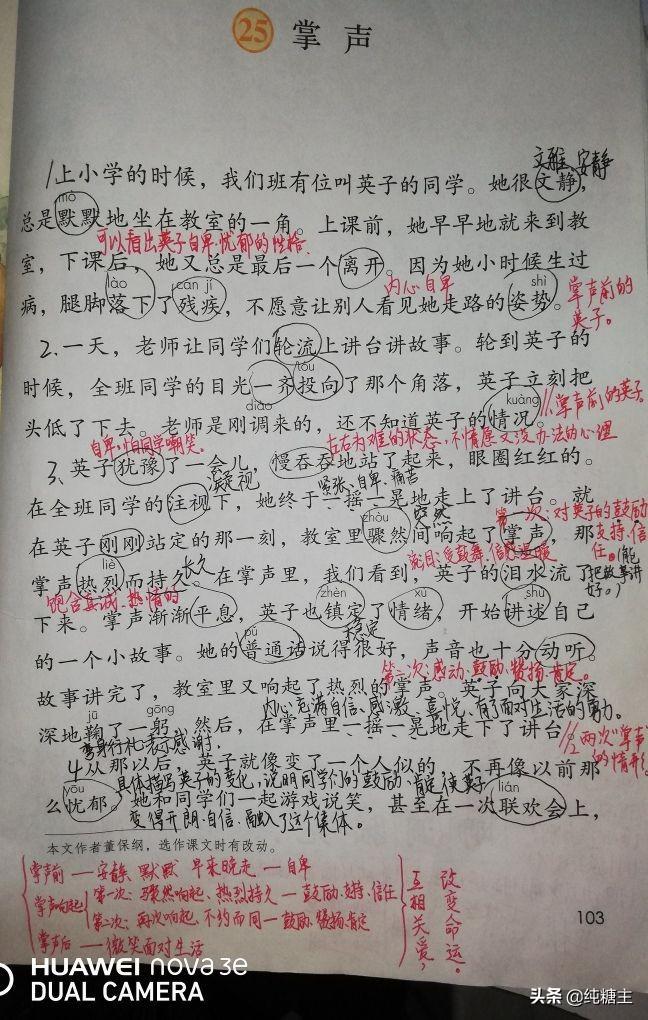 25 掌声
文雅、安静
1上小学的时候，我们班有位叫英子的同学。她很文静，
mò
总是默默地坐在教室的一角。上课前，她早早地就来到教
可以看出英子自卑、忧郁的性格。
室，下课后，她又总是最后一个离开。因为她小时候生过
lào cán jí 内心自卑 shì
病，腿脚落下了残疾，不愿意让别人看见她走路的姿势。
掌声前的
英子。
2.一天，老师让同学们轮流上讲台讲故事。轮到英子的
tóu
时候，全班同学的目光一齐投向了那个角落，英子立刻把
diào kuàng
头低了下去。老师是刚调来的，还不知道英子的情况。
掌声前的英子
自卑，怕同学嘲笑。 左右为难的状态，不情愿又没办法的心理
3、英子犹豫了一会儿，慢吞吞地站了起来，眼圈红红的。
凝视 紧张、自卑、痛苦
在全班同学的注视下，她终于一摇一晃地走上了讲台。就
zhòu 突然 第一次：对英子的鼓励
支持、信
任。
在英子刚刚站定的那一刻，教室里骤然间响起了掌声，那
liè 长久
掌声热烈而持久。在掌声里，我们看到，英子的泪水流了
饱含真诚、热情的 zhèn xù shù
下来。掌声渐渐平息，英子也镇定了情绪，开始讲述自己
pǔ 稳定
的一个小故事。她的普通话说得很好，声音也十分动听。
第二次：感动、鼓励、赞扬、肯定。
故事讲完了，教室里又响起了热烈的掌声。英子向大家深
jū gōng 内心充满自信、感激、喜悦、有了面对生活的勇力。
深地鞠了一躬，然后，在掌声里一摇一晃地走下了讲台。
两次“掌声”
的情形
弯身行礼表示感谢.
4从那以后，英子就像变了一个人似的，不再像以前那
具体描写英子的变化，说明同学们的鼓励、肯定使英子
yōu lián
么忧郁。她和同学们一起游戏说笑，甚至在一次联欢会上，
变得开朗、自信、融入了这个集体。
本文作者董保纲，选作课文时有改动。
掌声前 — 安静、默默 早来晚走 — 自卑
掌声响起
第一次：骤然响起、热烈持久 — 鼓励、支持、信任
第二次：再次响起、不约而同 — 鼓励、赞扬、肯定
掌声后 — 微笑面对生活
互相关爱，
改变人命运。
103
HUAWEI nova 3e
DUAL CAMERA
头条 @纯糖主